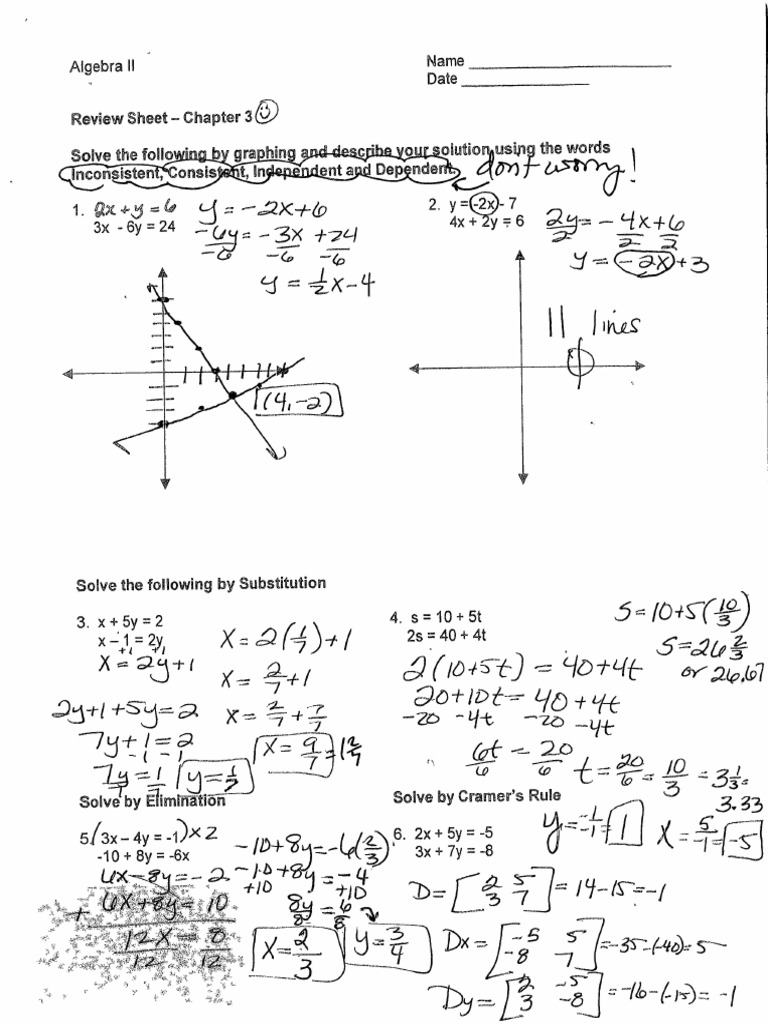 Algebra II
Name
Date
Review Sheet – Chapter 3
Solve the following by graphing and describe your solution using the words
Inconsistent, Consistent, Independent and Dependent.
don't worry!
1. 2x + y = 6
3x - 6y = 24
y = -2x + 6
-6y = -3x + 24
-6 -6 -6
y = 1/2 x - 4
(4, -2)
2. y = -2x - 7
4x + 2y = 6
2y = -4x + 6
2 2 2
y = -2x + 3
|| lines
x
Solve the following by Substitution
3. x + 5y = 2
x – 1 = 2y
+1 +1
x = 2y + 1
2y + 1 + 5y = 2
7y + 1 = 2
-1 -1
7y = 1
7 7
y = 1/7
x = 2(1/7) + 1
x = 2/7 + 1
x = 2/7 + 7/7
x = 9/7 = 1 2/7
4. s = 10 + 5t
2s = 40 + 4t
2(10 + 5t) = 40 + 4t
20 + 10t = 40 + 4t
-20 -4t -20 -4t
6t = 20
6 6
t = 20/6 = 10/3 = 3 1/3
3.33
s = 10 + 5(10/3)
s = 26 2/3
or 26.67
Solve by Elimination
5. (3x – 4y = -1) x 2
-10 + 8y = -6x
6x - 8y = -2
+ 6x + 8y = 10
12x = 8
12 12
x = 2/3
-10 + 8y = -6(2/3)
-10 + 8y = -4
+10 +10
8y = 6
8 8
y = 3/4
Solve by Cramer's Rule
6. 2x + 5y = -5
3x + 7y = -8
y = -1/-1 = 1
x = 5/-1 = -5
D = [2 5
3 7] = 14 - 15 = -1
Dx = [-5 5
-8 7] = -35 - (-40) = 5
Dy = [2 -5
3 -8] = -16 - (-15) = -1